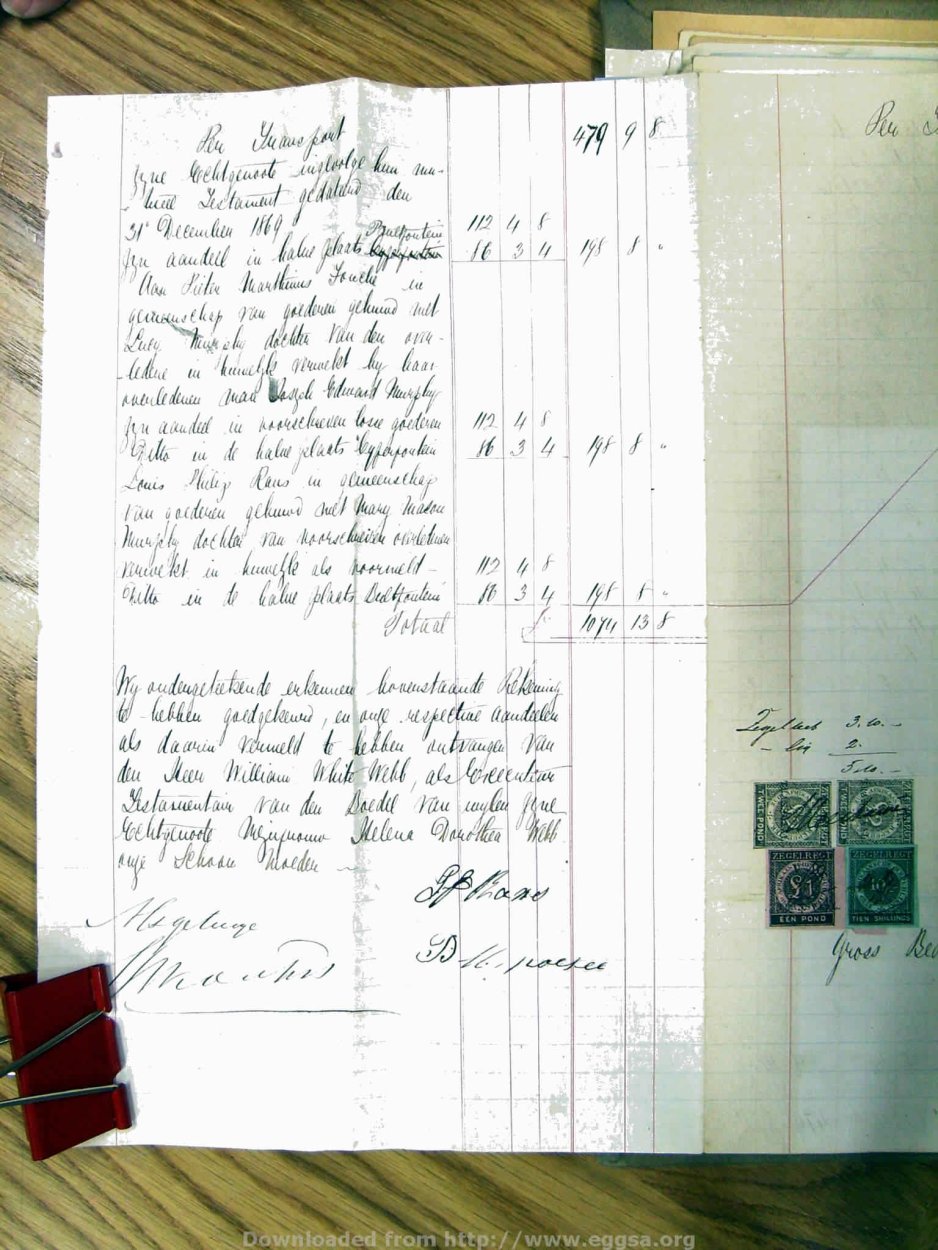 Per Transport 479 9 8
zyne Echtgenoote ingevolge hun mu-
tueel Testament gedateerd den
31e December 1869 112 4 8
zyn aandeel in halve plaats 86 3 4 198 8 "
Aan Pieter Marthinus Fouché in
gemeenschap van goederen gehuwd met
Lucy Murphy dochter van den over-
ledene in huwelyk verwekt by haar
overledenen man Joseph Edward Murphy
zyn aandeel in voorschreven losse goederen 112 4 8
Ditto in de halve plaats Cypherfontein 86 3 4 198 8 "
Louis Philip Raus in gemeenschap
van goederen gehuwd met Mary Mason
Murphy dochter van voorschreven overledenen
verwekt in huwelyk als voormeld - 112 4 8
Ditto in de halve plaats 86 3 4 198 8 "
Totaal £ 1074 13 8
Wy ondergeteekende erkennen bovenstaande Rekening
te hebben goedgekeurd, en onze respective aandeelen
als daarin vermeld te hebben ontvangen van
den Heer William White Webb, als Executeur
Testamentair van den Boedel van wylen zyne
Echtgenoote Mejufvrouw Helena Dorothea Webb
onze Schoon Moeder
Als getuige
Per
Zegels 3.10.-
2.
5.10.-
TWEE POND
ZEGELREGT
£1
EEN POND
ZEGELREGT
10/
TIEN SHILLINGS
Gross
Downloaded from http://www.eggsa.org